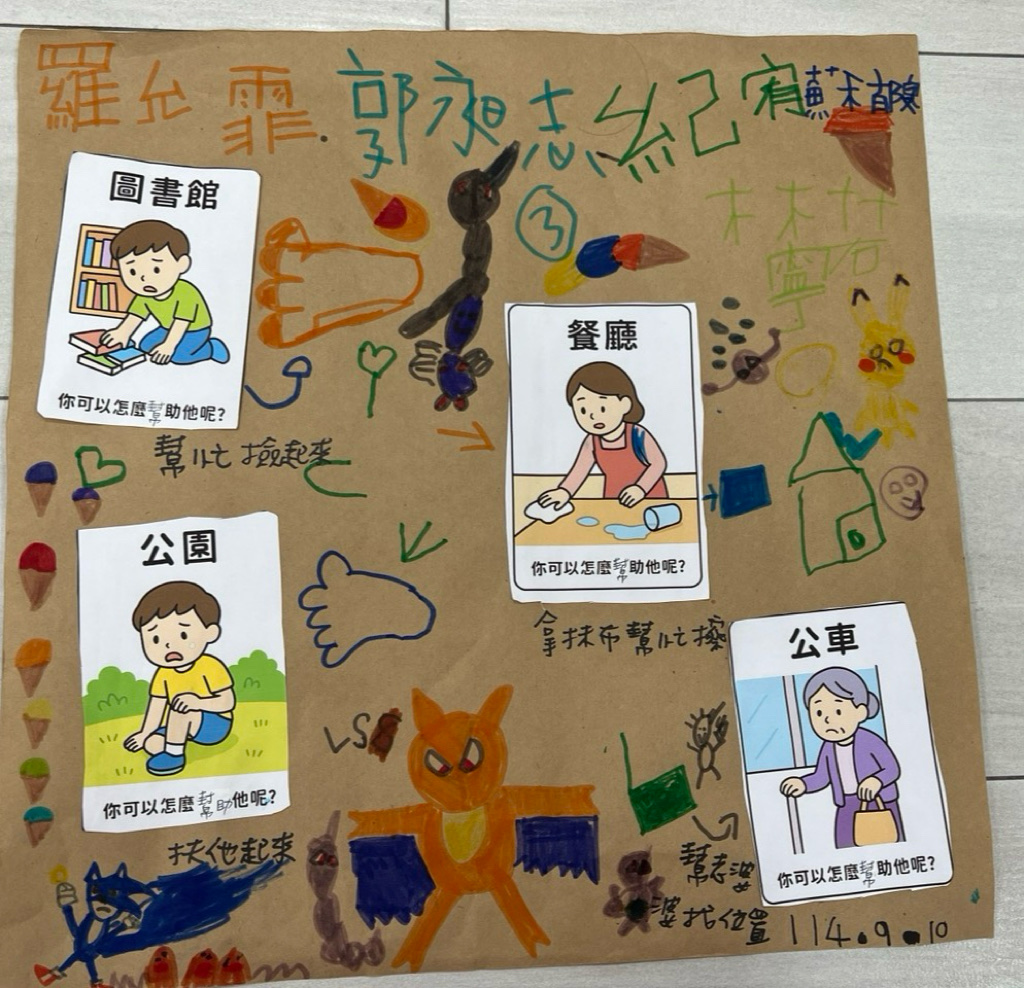 羅允霏 郭宸志 紀宥 蘇禾
林楷寧
3
圖書館
你可以怎麼幫助他呢?
幫忙撿起來
餐廳
你可以怎麼幫助他呢?
拿抹布幫忙擦
公園
你可以怎麼幫助他呢?
扶他起來
VS
公車
你可以怎麼幫助他呢?
幫老婆
婆找位置
114.9.10